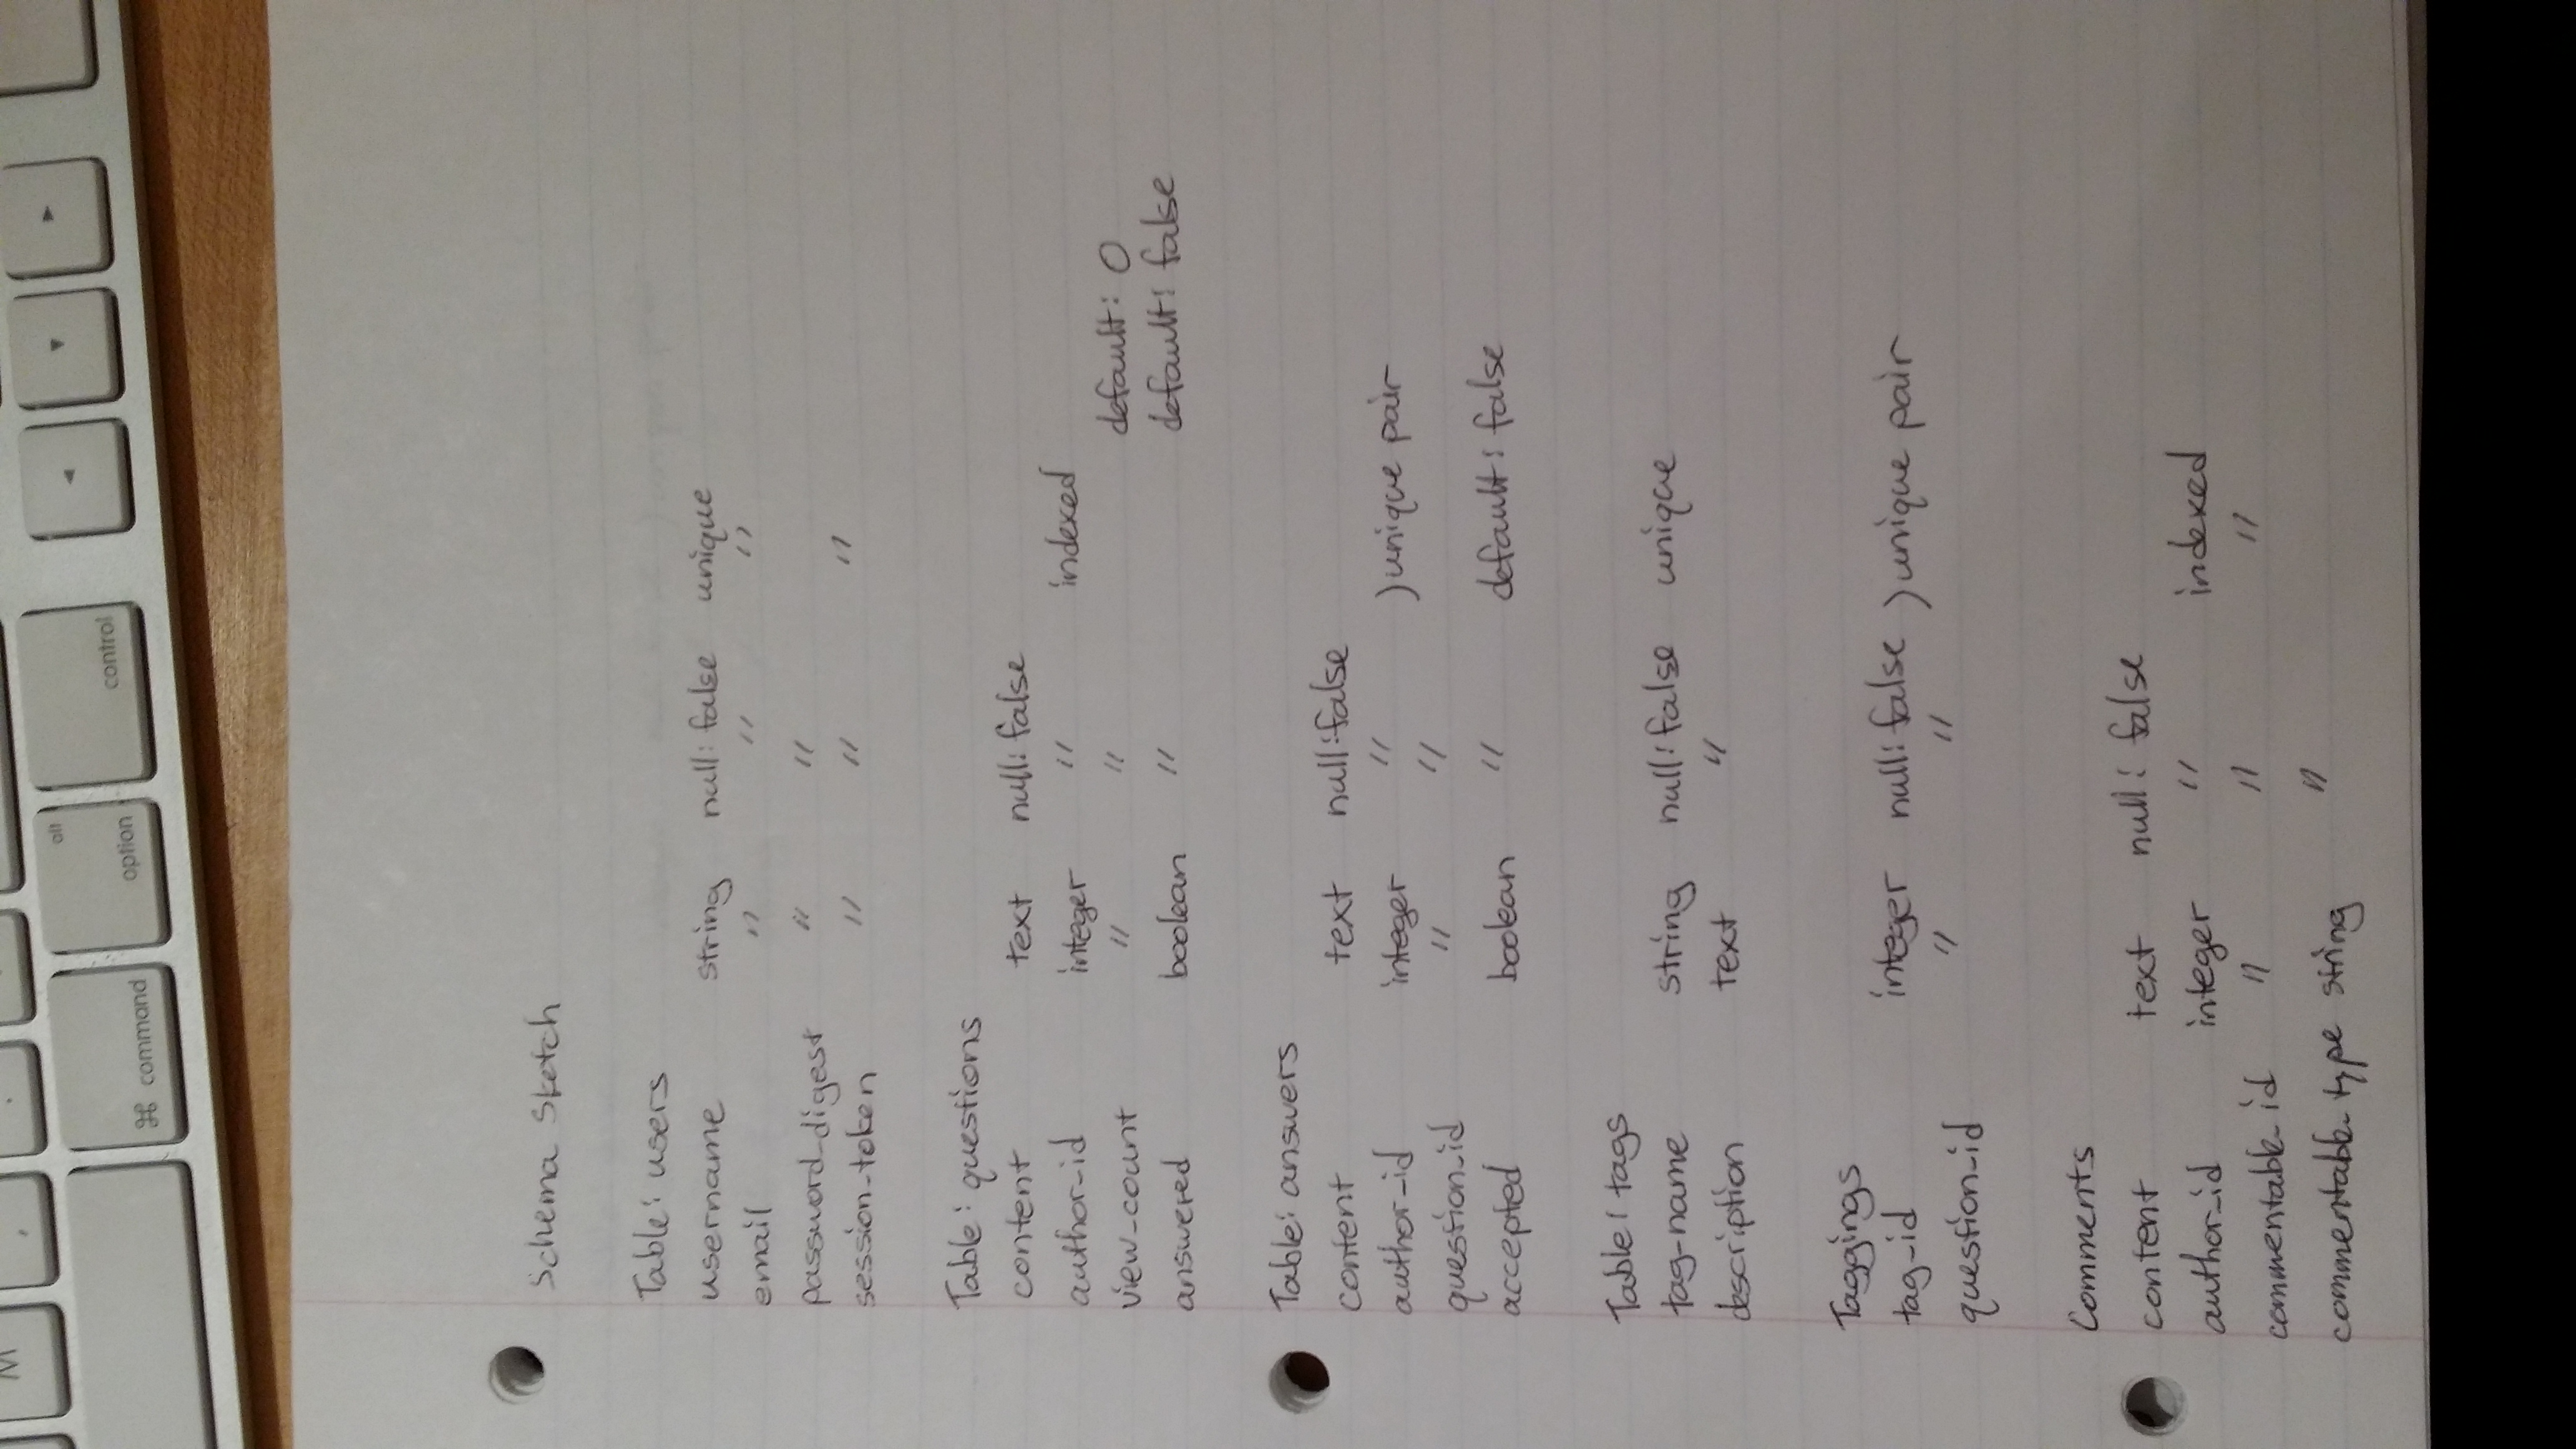 M ,
alt
⌘ command option control
◄ ▼ ►
Schema Sketch
Table: users
username string null: false unique
email " " "
password_digest " "
session_token " " "
Table: questions
content text null: false
author_id integer " indexed
view_count " " default: 0
answered boolean " default: false
Table: answers
content text null: false
author_id integer " ) unique pair
question_id " "
accepted boolean " default: false
Table: tags
tag_name string null: false unique
description text "
Taggings
tag_id integer null: false ) unique pair
question_id " "
Comments
content text null: false
author_id integer " indexed
commentable_id " " "
commentable_type string "